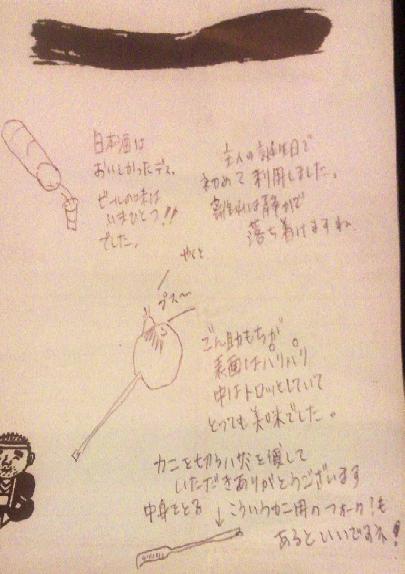 日本酒は
おいしかったデス。
ビールの味は
いまひとつ!!
でした。
主人の誕生日で
初めて利用しました。
静かで
落ち着けますね
プス〜
ごん助もちが
表面はパリパリ
中はトロッとしていて
とっても美味でした。
カニを切るハサミを優して
いただきありがとうございます
中身をとる ↓こういうカニ用のフォーク!も
あるといいですネ!